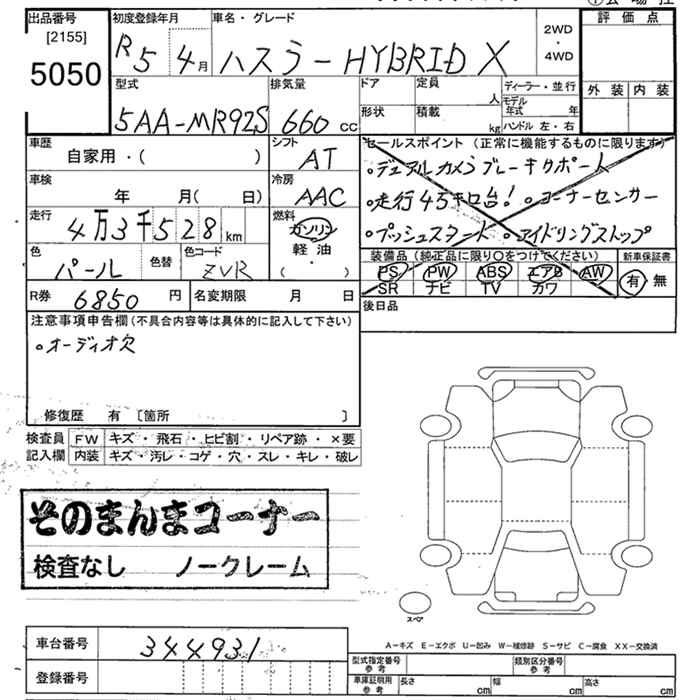 出品番号 初度登録年月 車名・グレード 2WD ・ 4WD 評価点
[2155]
5050 R5 4月 ハスラー HYBRID X
外装 内装
型式 排気量 ドア 定員 人 ディーラー・並行
5AA-MR92S 660cc 形状 積載 kg モデル年式 年
ハンドル 左・右
車歴 シフト セールスポイント (正常に機能するものに限ります)
自家用・( ) AT
。デュアルカメラブレーキサポート
車検 冷房
年 月( 日) AAC
。走行45キロ台! 。コーナーセンサー
走行 燃料
4万3千528km ガソリン
。プッシュスタート 。アイドリングストップ
軽油
・( )
色 色替 色コード
パール ZVR
装備品 (純正品に限り〇をつけてください) 新車保証書
PS PW ABS エアB AW 有・無
SR ナビ TV カワ
R券 6850円 名変期限 月 日
後日品
注意事項申告欄(不具合内容等は具体的に記入して下さい)
。オーディオ欠
修復歴 有 〔箇所 〕
検査員 FW キズ・飛石・ヒビ割・リペア跡・×要
記入欄 内装 キズ・汚レ・コゲ・穴・スレ・キレ・破レ
そのまんまコーナー
検査なし ノークレーム
スペア
A-キズ E-エクボ U-凹み W-補修跡 S-サビ C-腐食 XX-交換済
車台番号 344931
型式指定番号 参考 類別区分番号 参考
登録番号
車庫証明用 参考 長さ cm 幅 cm 高さ cm